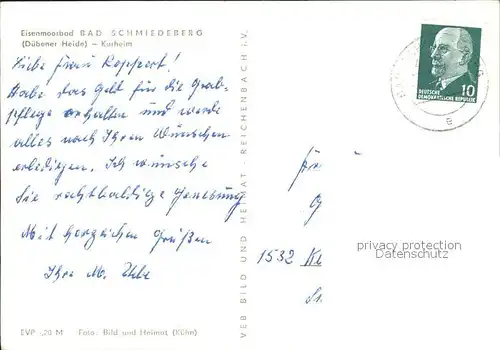 Eisenmoorbad BAD SCHMIEDEBERG
(Dübener Heide) – Kurheim
Liebe Frau Koppert!
Habe das Geld für die Grab-
pflege erhalten und werde
alles nach Ihren Wünschen
erledigen. Ich wünsche
Sie recht baldige Genesung
Mit herzlichen Grüßen
Ihre M.
EVP -,20 M Foto: Bild und Heimat (Kühn)
VEB BILD UND HEIMAT REICHENBACH i. V.
10
DEUTSCHE
DEMOKRATISCHE REPUBLIK
e
1532
privacy protection
Datenschutz